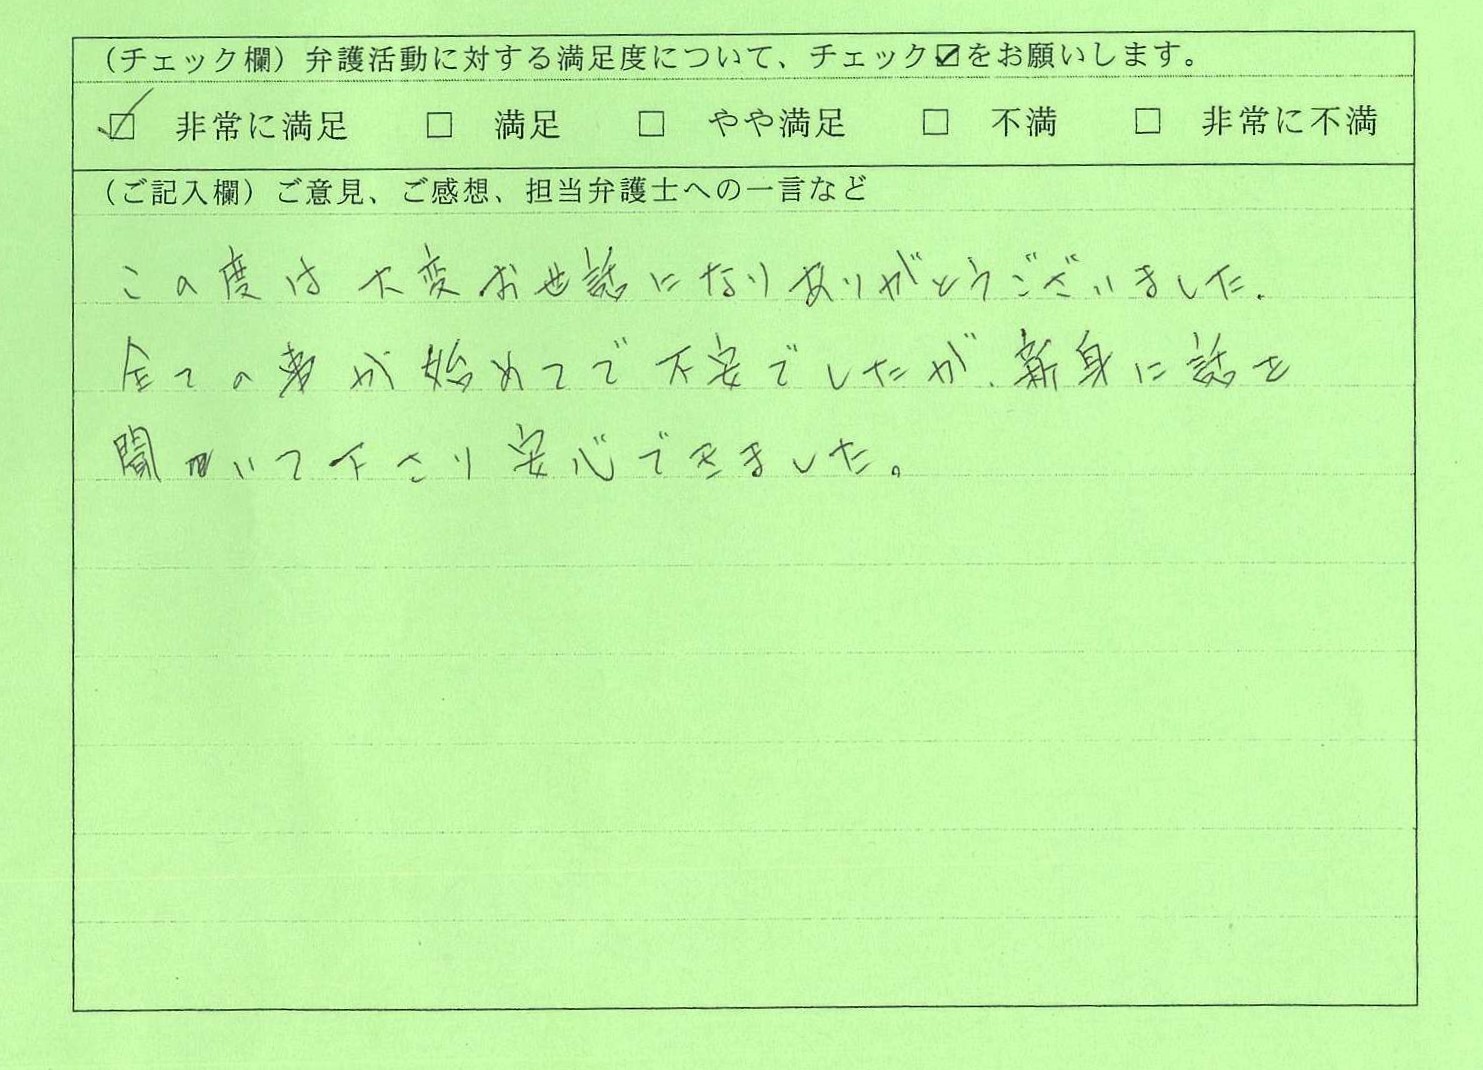 （チェック欄）弁護活動に対する満足度について、チェック☑をお願いします。
☑ 非常に満足 □ 満足 □ やや満足 □ 不満 □ 非常に不満
（ご記入欄）ご意見、ご感想、担当弁護士への一言など
この度は大変お世話になりありがとうございました.
全ての事が始めてで不安でしたが、新身に話を
聞いて下さり安心できました。